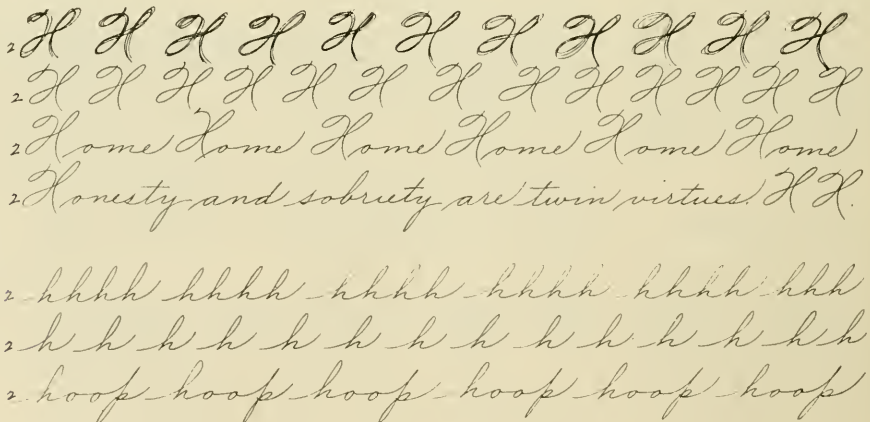 2 H H H H H H H H H H H
2 H H H H H H H H H H H H H
2 Home Home Home Home Home Home
2 Honesty and sobriety are twin virtues. H H.
2 hhhh hhhh hhhh hhhh hhhh hhh
2 h h h h h h h h h h h h h
2 hoop hoop hoop hoop hoop hoop